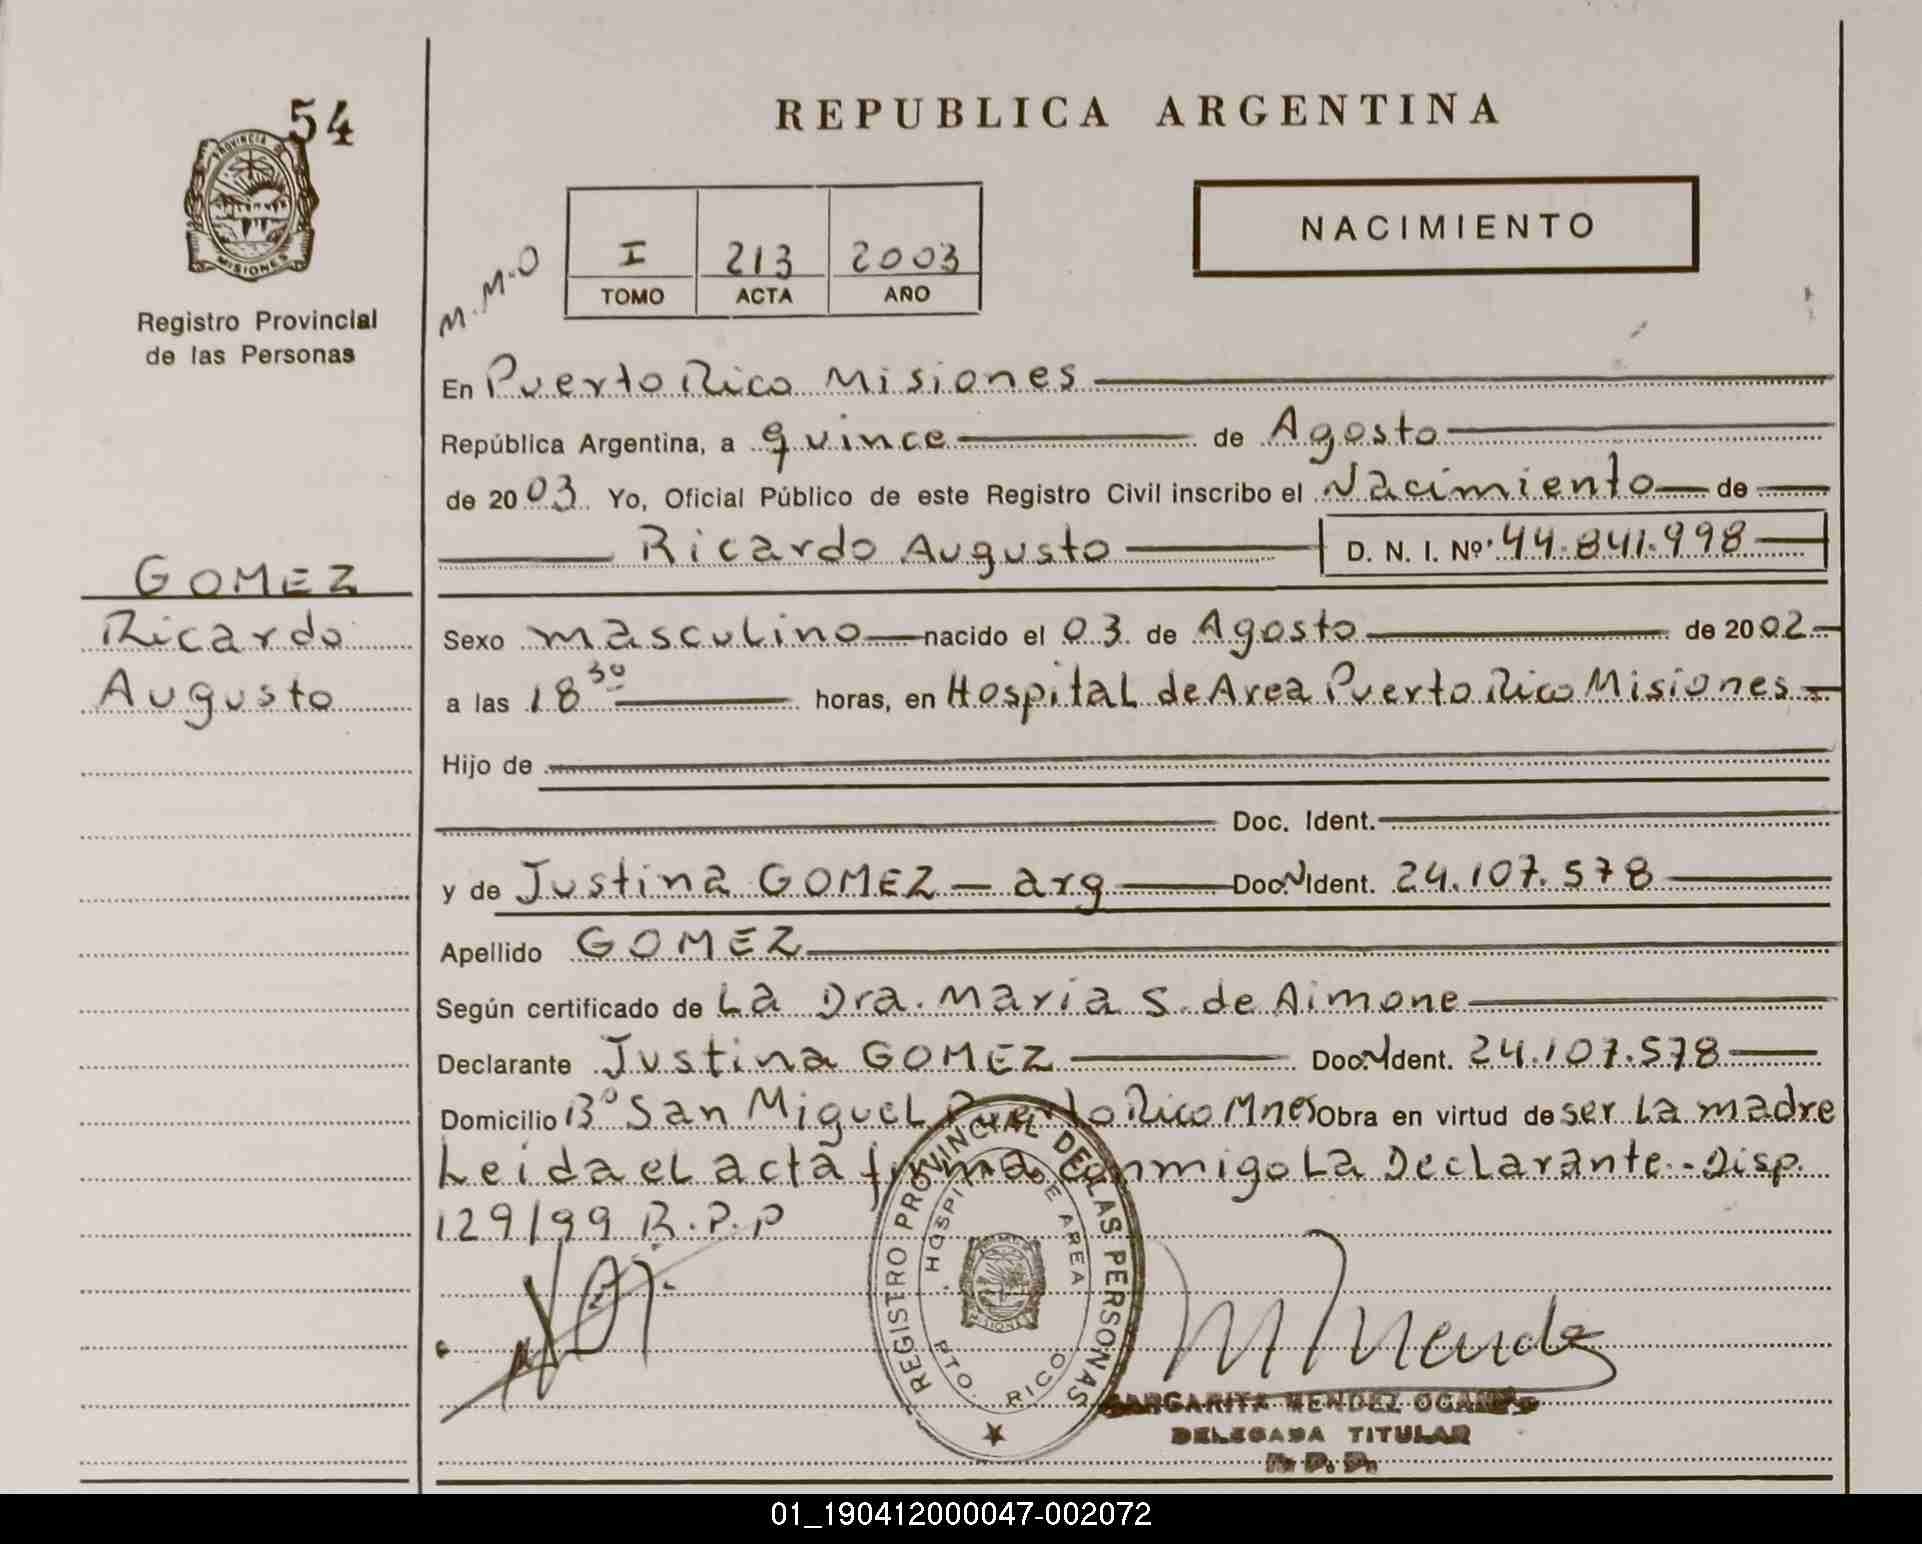 54
PROVINCIA DE
MISIONES
Registro Provincial
de las Personas
GOMEZ
Ricardo
Augusto
REPUBLICA ARGENTINA
NACIMIENTO
M.M.O
I 213 2003
TOMO ACTA AÑO
En Puerto Rico Misiones
República Argentina, a quince de Agosto
de 2003. Yo, Oficial Público de este Registro Civil inscribo el Nacimiento de
Ricardo Augusto D. N. I. Nº 44.841.998
Sexo masculino nacido el 03 de Agosto de 2002
a las 18 30 horas, en Hospital de Area Puerto Rico Misiones
Hijo de
Doc. Ident.
y de Justina GOMEZ - arg Doc. N Ident. 24.107.578
Apellido GOMEZ
Según certificado de La Dra. Maria S. de Aimone
Declarante Justina GOMEZ Doc. N Ident. 24.107.578
Domicilio Bº San Miguel Puerto Rico Mnes Obra en virtud de ser La madre
Leida el acta firma conmigo La Declarante.- Disp.
129/99 R.P.P
REGISTRO PROVINCIAL DE LAS PERSONAS
HOSPITAL DE AREA
MISIONES
PTO. RICO
M Mendez
MARGARITA MENDEZ OCAMPO
DELEGADA TITULAR
R. P. P.
01_190412000047-002072